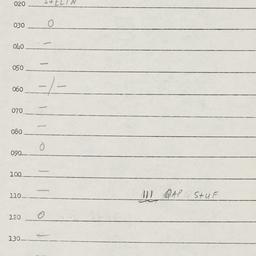 020
030 O
040 —
050 —
060 —/—
070 —
080 —
090 O
100 —
110 — !!! GAP STUF
120 O
130 —